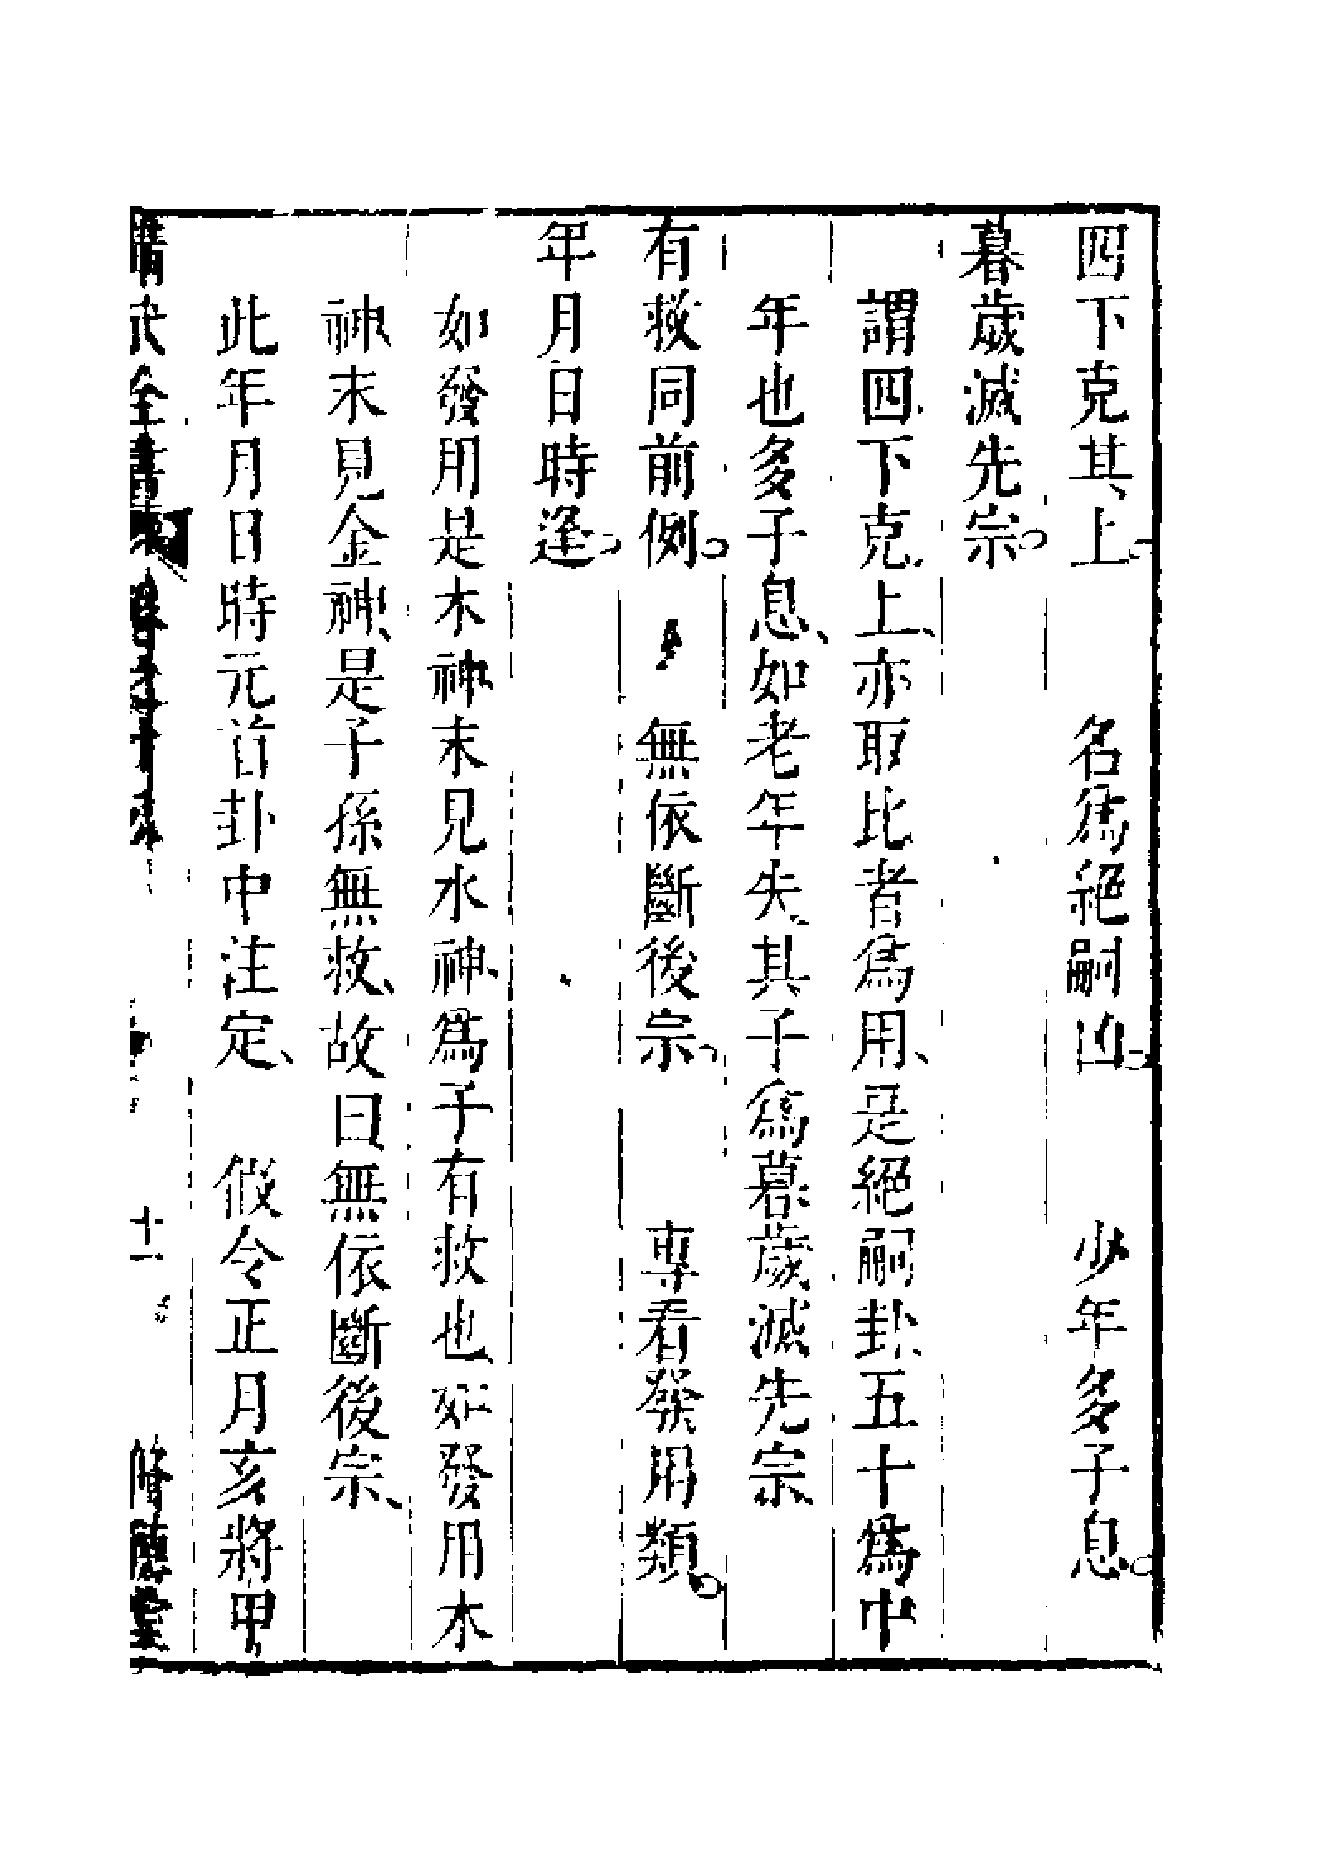 四下克其上。 名爲絕嗣凶。 少年多子息。
暮歲滅先宗。
謂四下克上、亦取比者爲用、是絕嗣卦、五十爲中
年也多子息、如老年失、其子爲暮歲滅先宗、
有救同前例。 無依斷後宗。 專看發用類。
年月日時逢。
如發用是木神末見水神、爲子有救也、如發用木
神末見金神、是子孫無救、故曰無依斷後宗、
此年月日時元首卦中注定、 假令正月亥將甲
全書
十一 修德堂